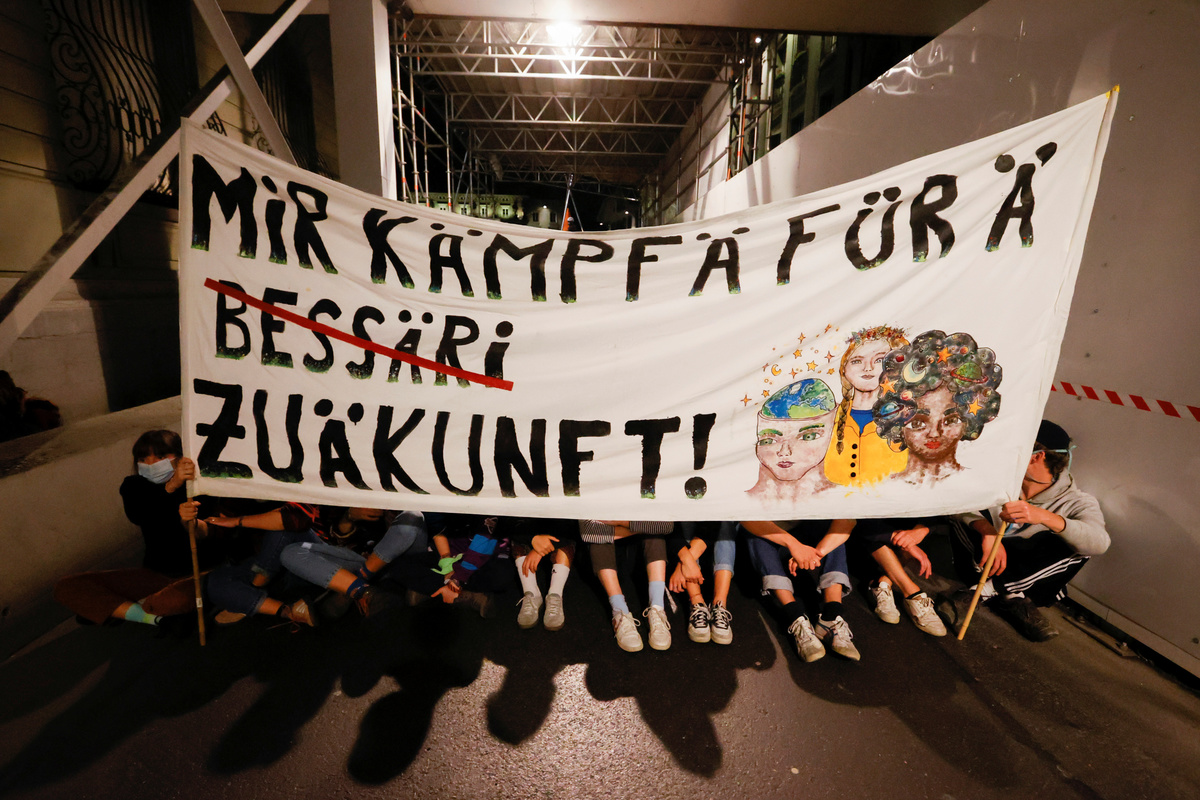 MiR KÄMPFÄ FÜR Ä
BESSÄRi
ZUÄKUNFT!